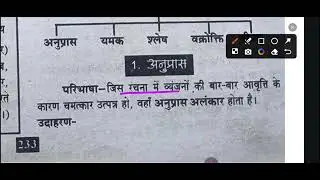 अनुप्रास यमक श्लेष वक्रोक्ति
1. अनुप्रास
परिभाषा–जिस रचना में व्यंजनों की बार-बार आवृत्ति के
कारण चमत्कार उत्पन्न हो, वहाँ अनुप्रास अलंकार होता है।
उदाहरण-
233